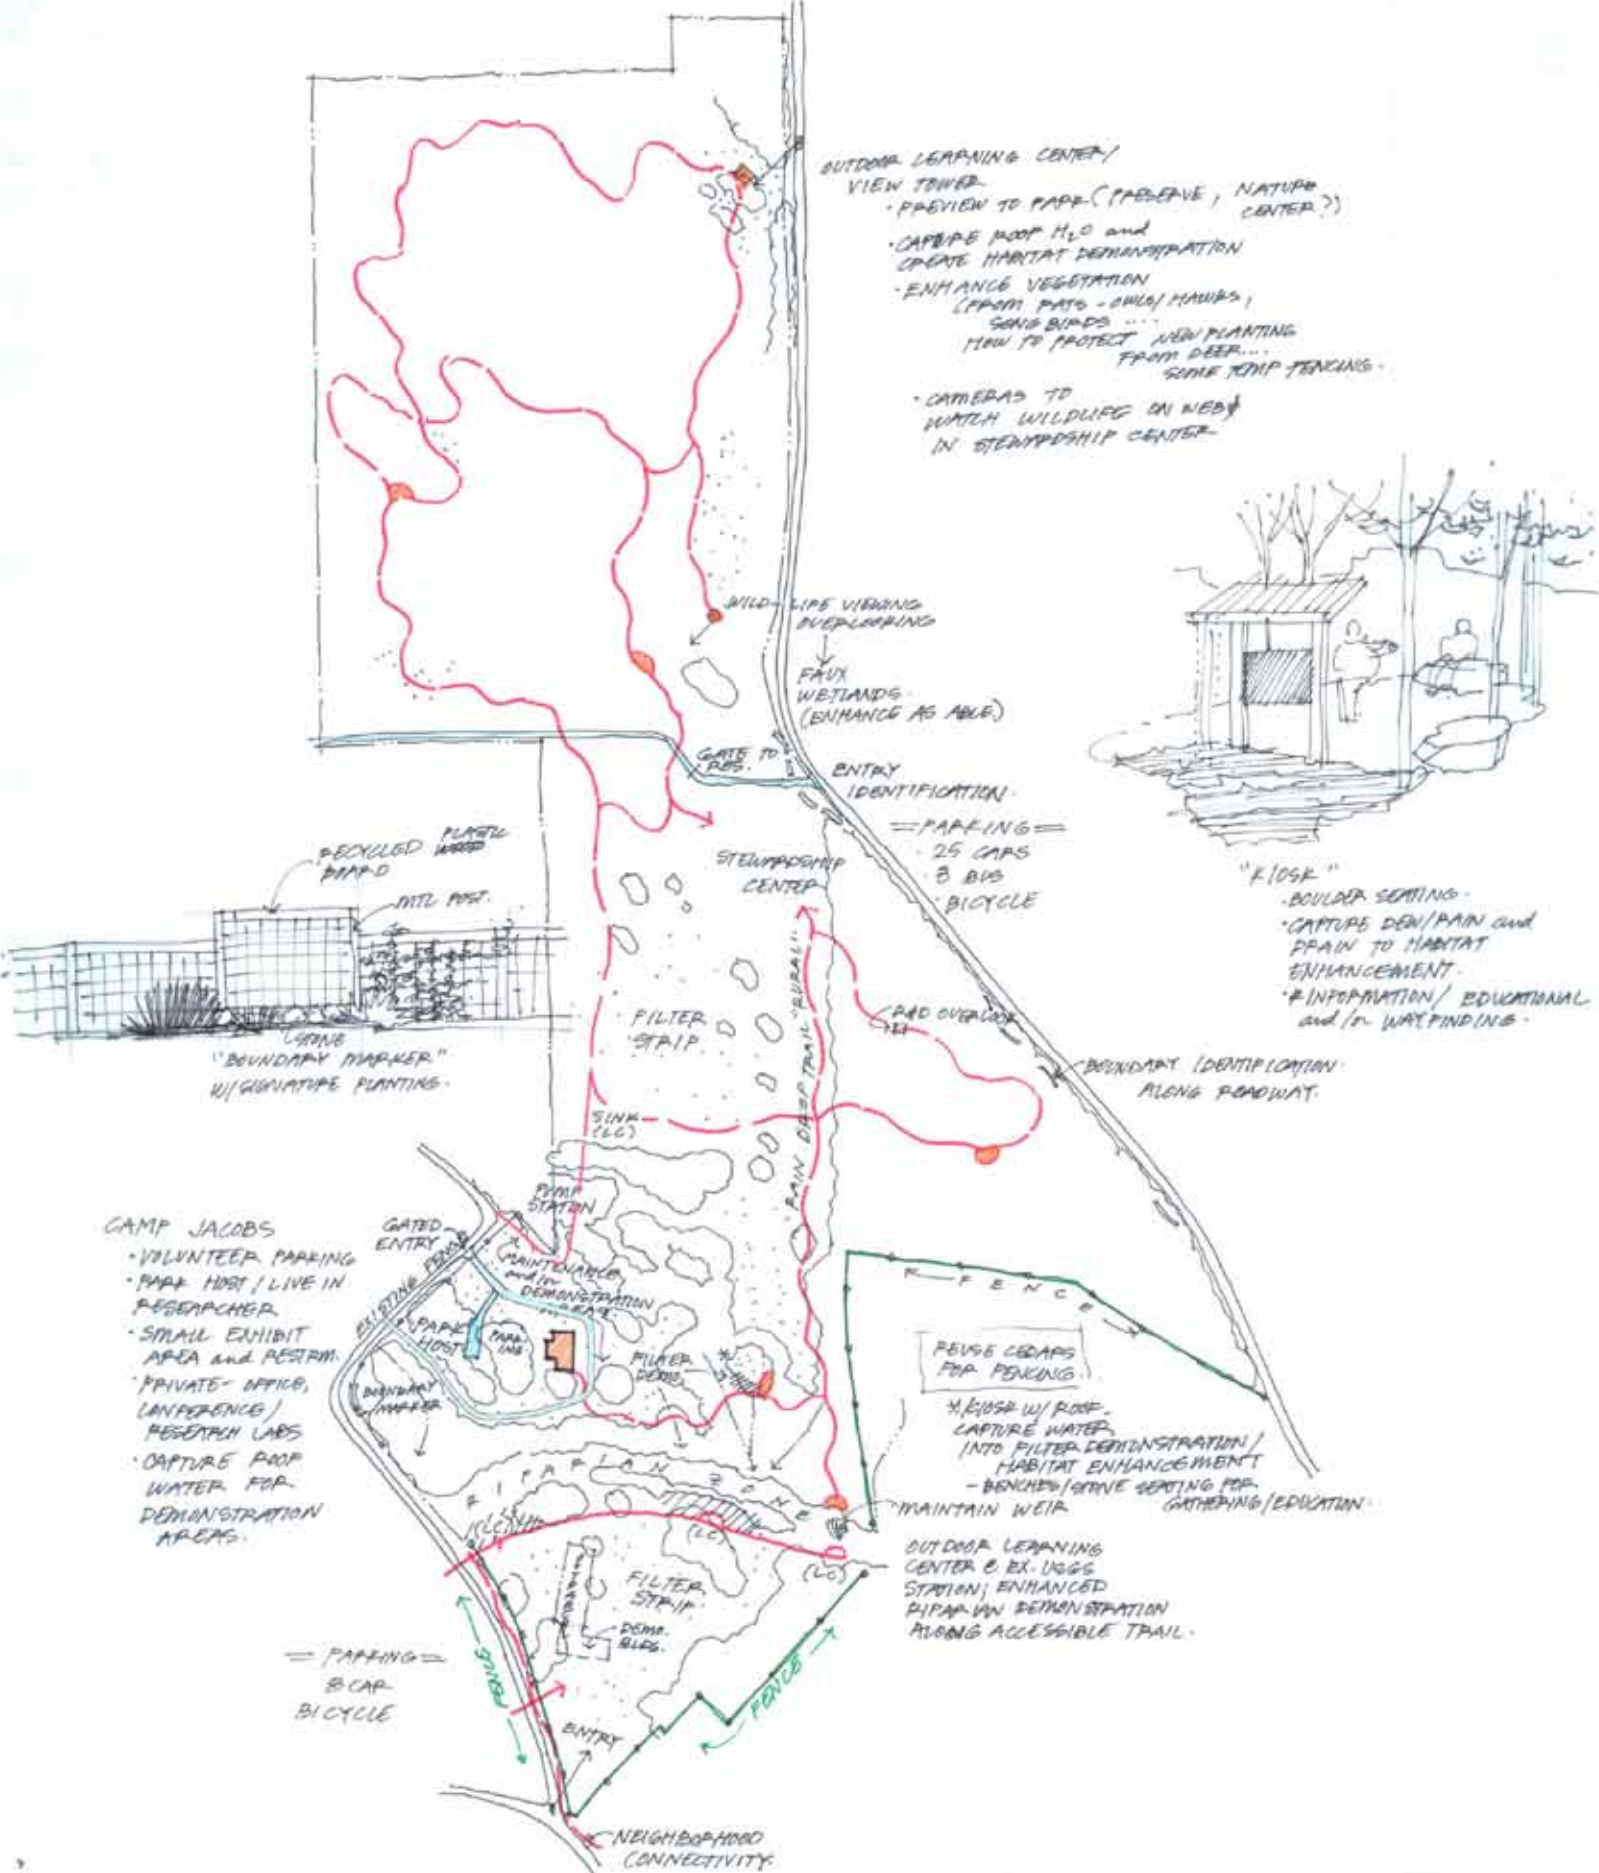 OUTDOOR LEARNING CENTER/
VIEW TOWER
• PREVIEW TO PARK (PRESERVE, NATURE
CENTER?)
• CAPTURE ROOF H2O and
CREATE HABITAT DEMONSTRATION
• ENHANCE VEGETATION
(FROM RATS - OWLS/HAWKS,
SONG BIRDS ....
HOW TO PROTECT NEW PLANTING
FROM DEER....
SOME TEMP FENCING.
• CAMERAS TO
WATCH WILDLIFE ON WEB
IN STEWARDSHIP CENTER
WILD-LIFE VIEWING
OVERLOOKING
FAUX
WETLANDS
(ENHANCE AS ABLE)
GATE TO
RES.
ENTRY
IDENTIFICATION.
= PARKING =
25 CARS
3 BUS
BICYCLE
"KIOSK"
• BOULDER SEATING.
• CAPTURE DEW/RAIN and
DRAIN TO HABITAT
ENHANCEMENT.
INFORMATION/ EDUCATIONAL
and/or WAYFINDING.
RECYCLED PLASTIC
BOARD
MTL POST.
STONE
"BOUNDARY MARKER"
W/SIGNATURE PLANTING.
STEWARDSHIP
CENTER
FILTER
STRIP
RAIN DROP TRAIL "RURAL"
OVERLOOK
BOUNDARY IDENTIFICATION
ALONG ROADWAY.
SINK
(LC)
PUMP
STATION
GATED
ENTRY
EXISTING FENCE
MAINTENANCE
and/or
DEMONSTRATION
AREAS
PARK
HOST
PARK-
ING
FILTER
DEMO.
BOUNDARY
MARKER
CAMP JACOBS
• VOLUNTEER PARKING
• PARK HOST / LIVE IN
RESEARCHER
• SMALL EXHIBIT
AREA and RESTRM.
• PRIVATE- OFFICE,
CONFERENCE/
RESEARCH LABS
• CAPTURE ROOF
WATER FOR
DEMONSTRATION
AREAS.
FENCE
REUSE CEDARS
FOR FENCING
* KIOSK W/ ROOF-
CAPTURE WATER
INTO FILTER DEMONSTRATION/
HABITAT ENHANCEMENT
- BENCHES/STONE SEATING FOR
GATHERING/EDUCATION.
RIPARIAN ZONE
MAINTAIN WEIR
(LC)
(LC)
(LC)
OUTDOOR LEARNING
CENTER @ EX. USGS
STATION; ENHANCED
RIPARIAN DEMONSTRATION
ALONG ACCESSIBLE TRAIL.
FILTER
STRIP
DEMO.
BLDG.
= PARKING =
8 CAR
BICYCLE
FENCE
FENCE
ENTRY
NEIGHBORHOOD
CONNECTIVITY